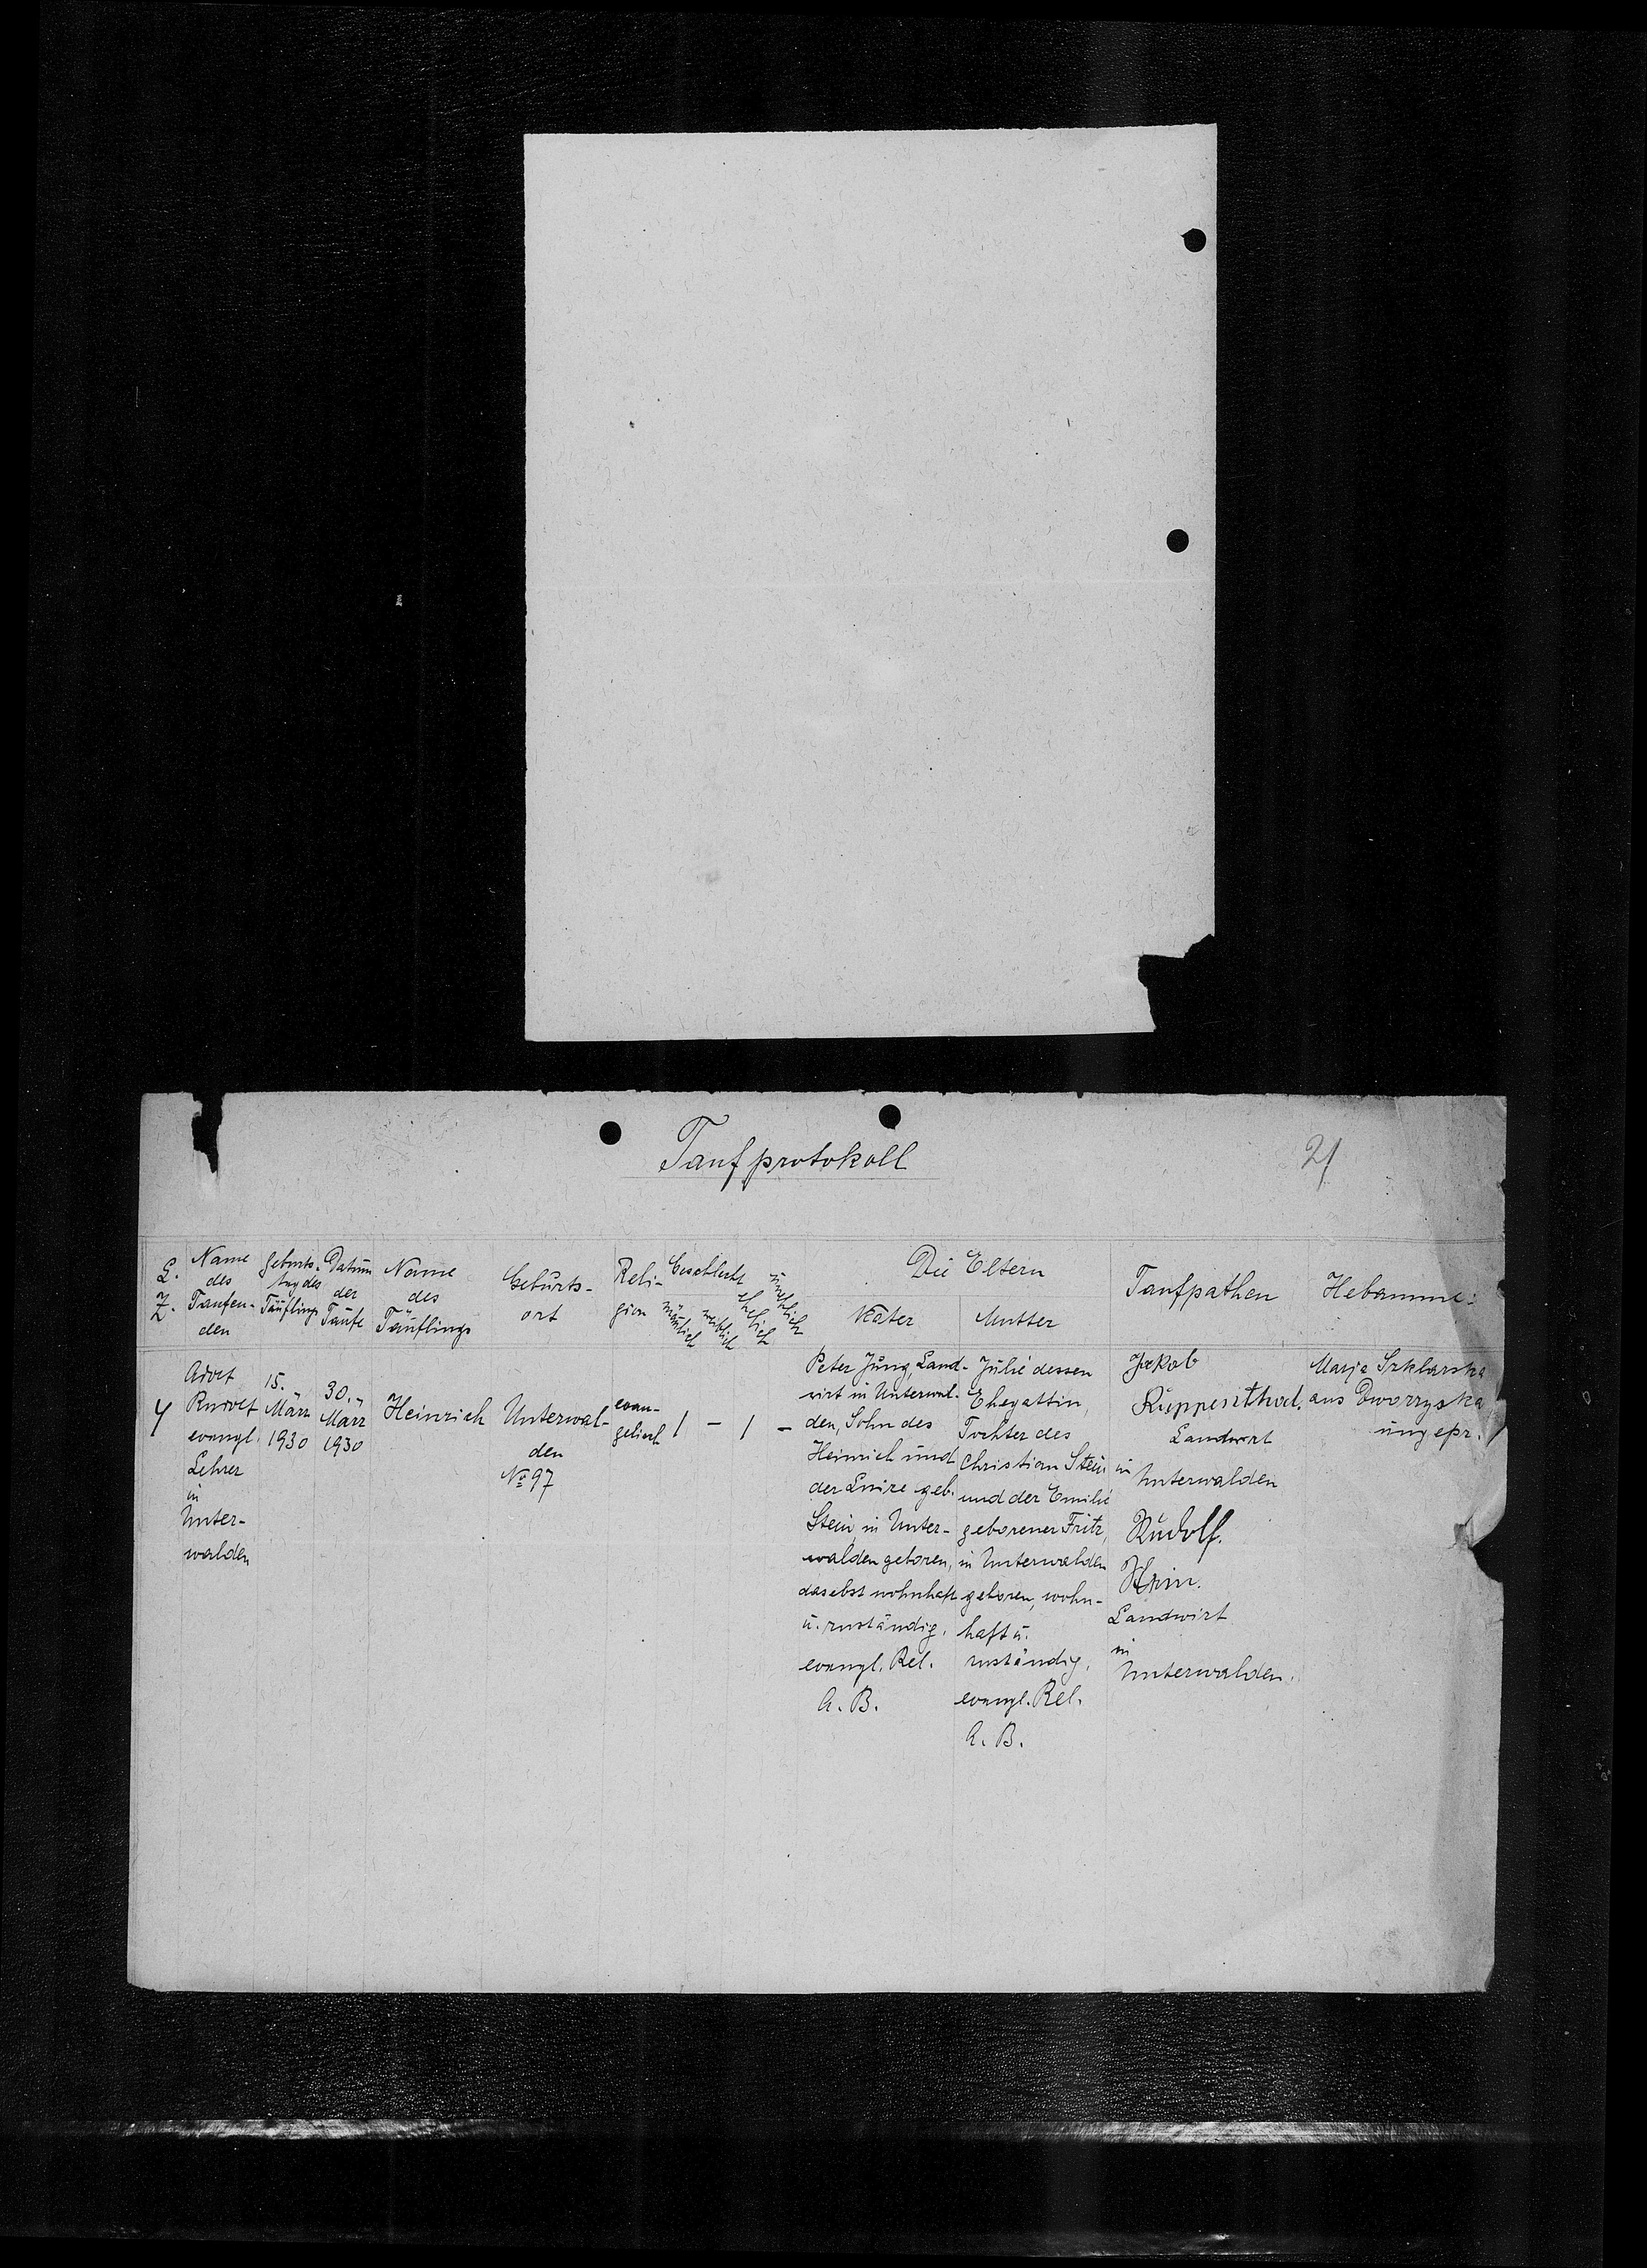 Taufprotokoll
21
L. Z.
Name
des
Taufen-
den
Geburts-
tag des
Täuflings
Datum
der
Taufe
Name
des
Täuflings
Geburts-
ort
Reli-
gion
Geschlecht
mänlich
weiblich
ehelich
unehlich
Die Eltern
Vater
Mutter
Taufpathen
Hebamme:
4
Adolf
Rudolf
evangl.
Lehrer
in
Unter-
walden
15.
März
1930
30.
März
1930
Heinrich
Unterwal-
den
№ 97
evan-
gelisch
1
–
1
–
Peter Jung, Land-
wirt in Unterwal-
den, Sohn des
Heinrich und
der Luize geb.
Stein, in Unter-
walden geboren,
daselbst wohnhaft
u. zuständig.
evangl. Rel.
A. B.
Julie dessen
Ehegattin,
Tochter des
Christian Stein
und der Emilie
geborener Fritz,
in Unterwalden
geboren, wohn-
haft u.
zuständig.
evangl. Rel.
A. B.
Jakob
Ruppenthal,
Landwirt
in
Unterwalden
Rudolf.
Landwirt
in
Unterwalden.
Marja Szklarska
aus Dworzyska
ungepr.